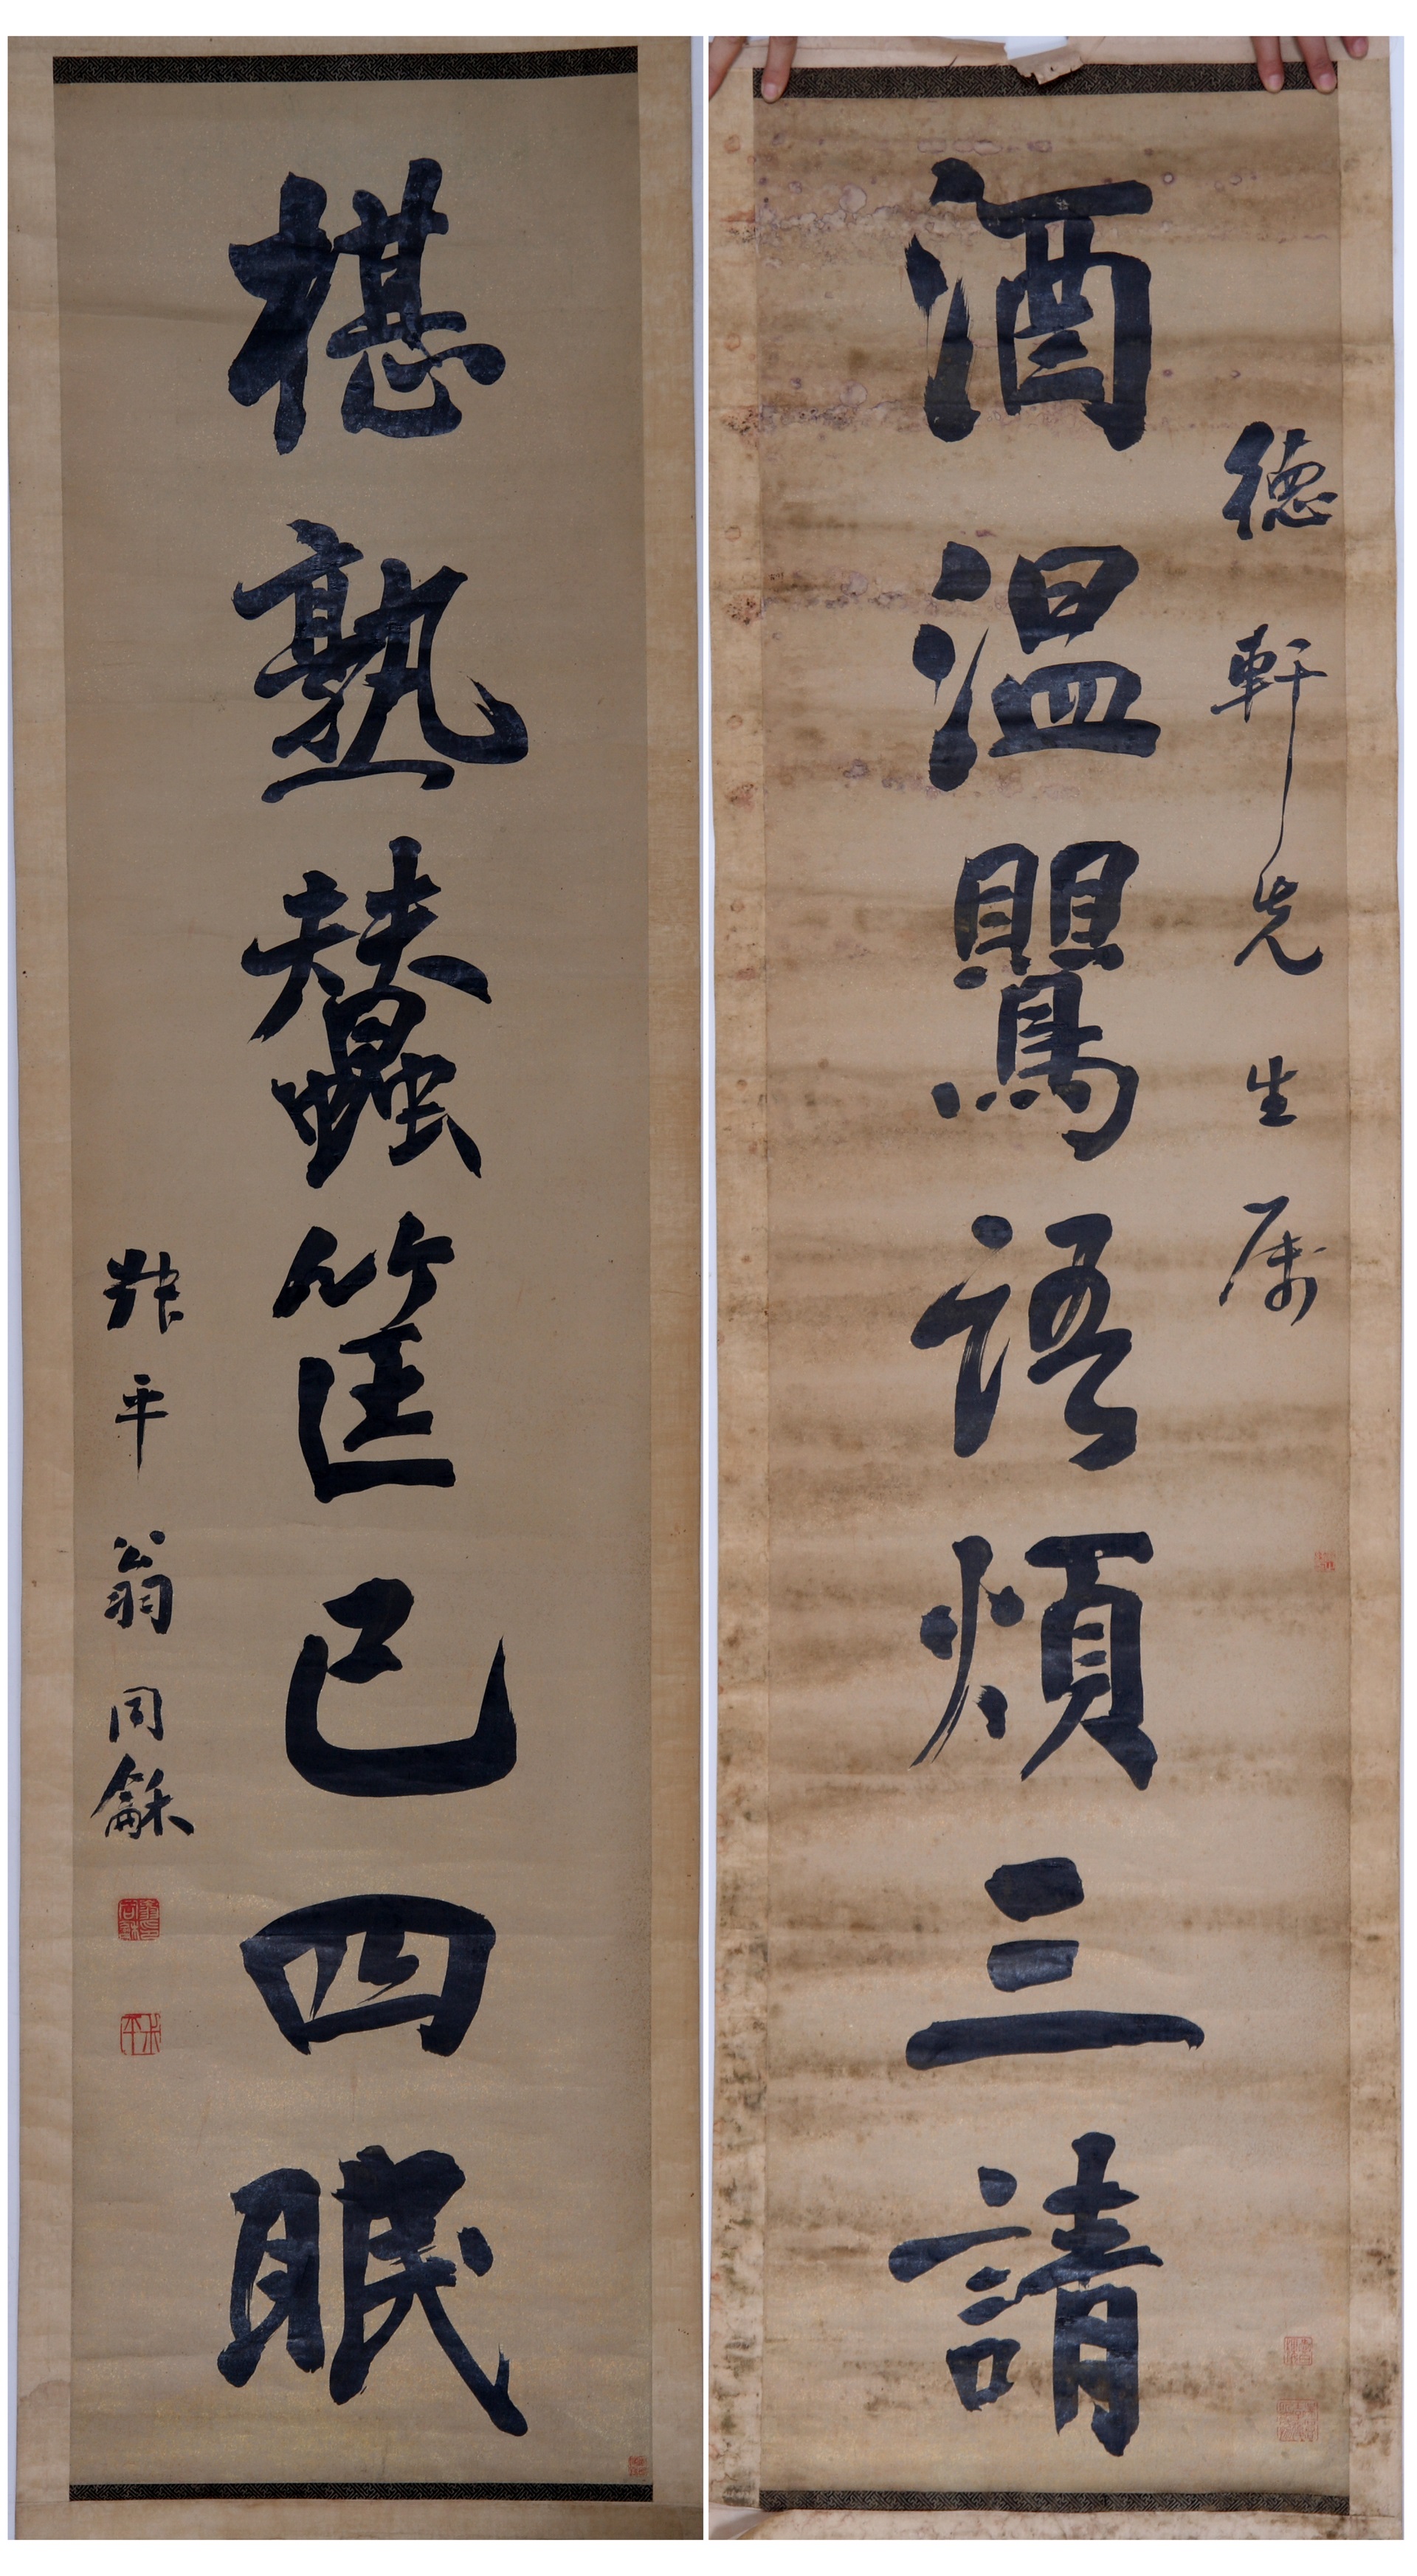 德軒先生属
酒温鷪語煩三請
椹熟蠶筐已四眠
叔平翁同龢